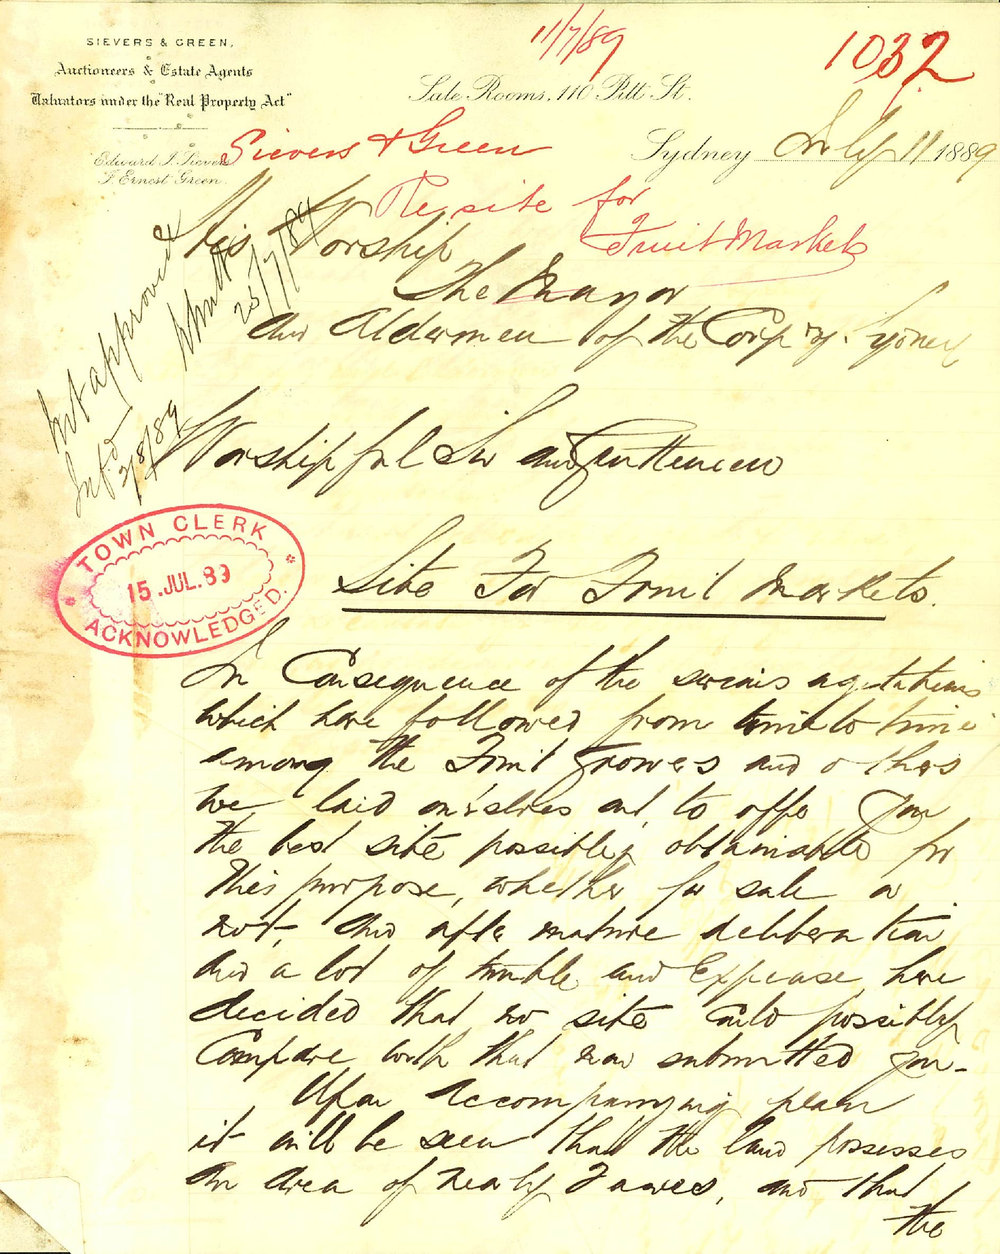 11/7/89
1032
SIEVERS & GREEN,
Auctioneers & Estate Agents
Valuators under the "Real Property Act"
Edward J. Sievers
F. Ernest Green.
Sale Rooms, 110 Pitt St.
Sydney July 11 1889
Sievers & Green
Re site for
Fruit Markets
Not approved
25/7/89
Infd
2/8/89
His Worship
The Mayor
and Aldermen of the Corp'n. Sydney
Worshipful Sir and Gentlemen
TOWN CLERK
15. JUL. 89
ACKNOWLEDGED.
Site For Fruit Markets.
In Consequence of the serious agitations
which have followed from time to time
among the Fruit Growers and others
we laid ourselves out, to offer you
the best site possibly obtainable for
this purpose, whether for sale or
not, and after mature deliberation
and a lot of trouble and Expense, have
decided that no site could possibly
Compare with that now submitted you-
Upon accompanying plan
it will be seen that the land possesses
an area of nearly 7 acres, and that
the